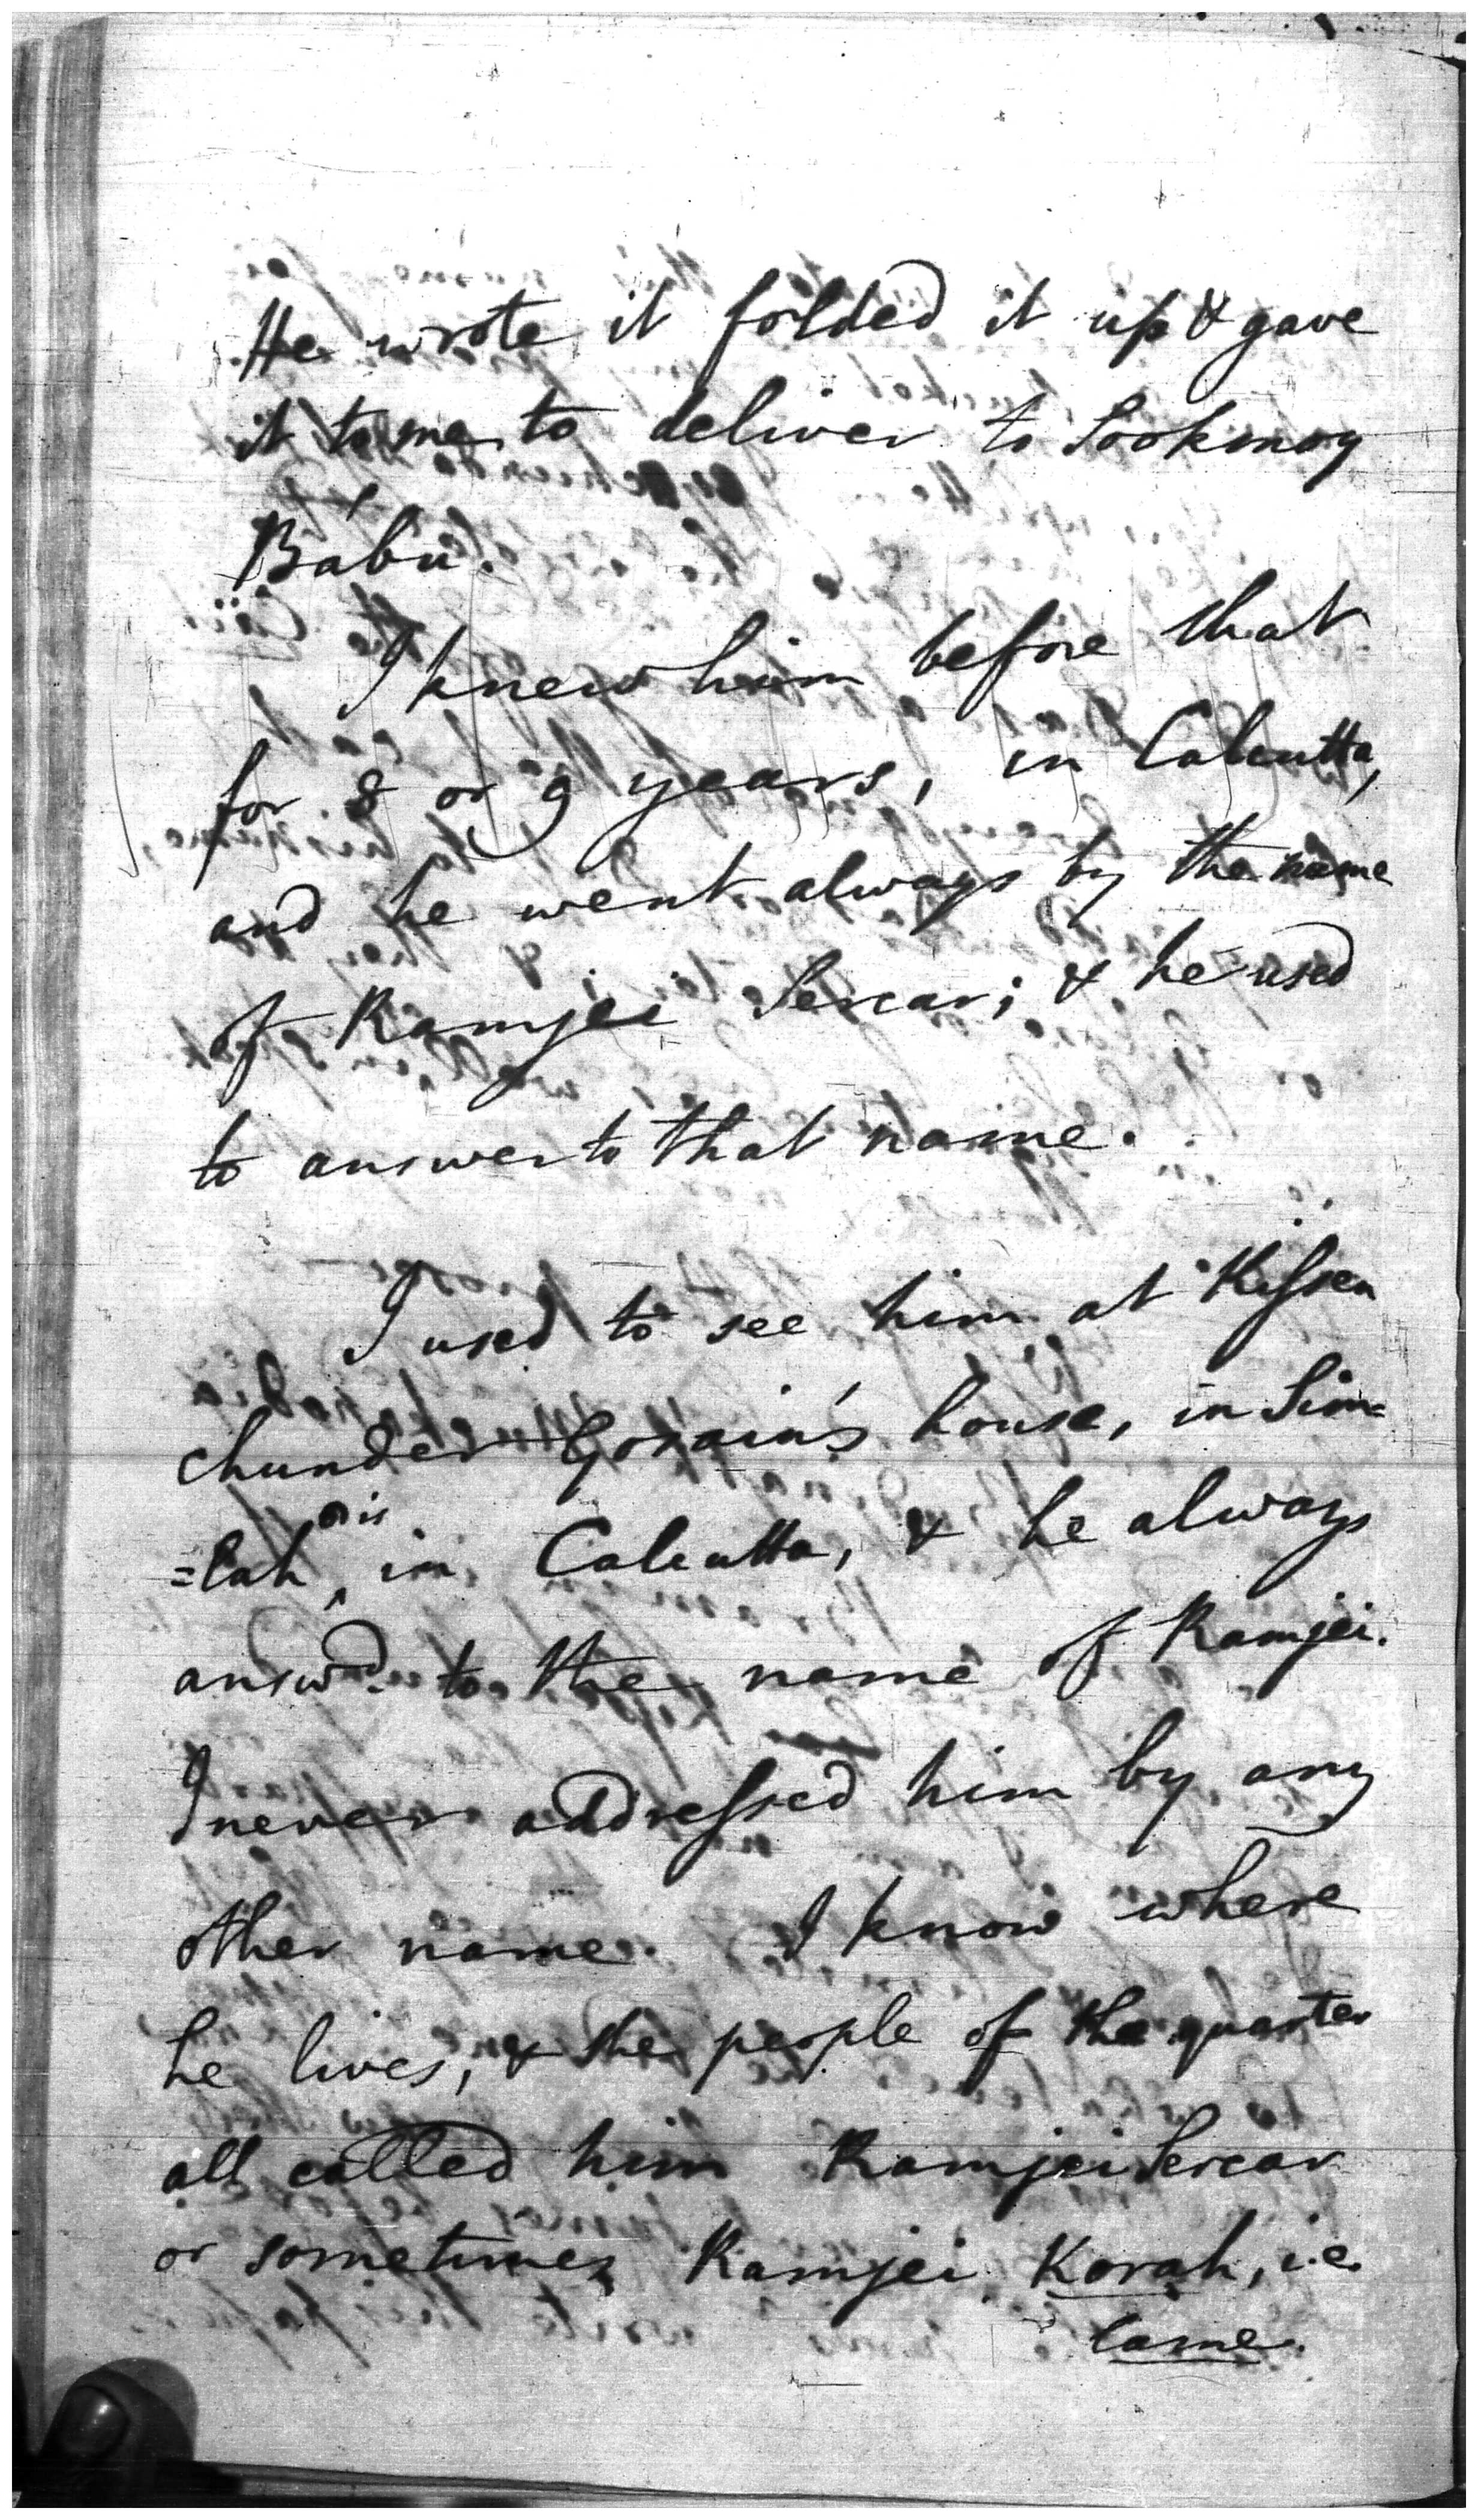 He wrote it folded it up & gave
it to me to deliver to Sookmoy
Bábú.
I knew him before that
for 8 or 9 years, in Calcutta,
and he went always by the name
of Ramjei Sercar; & he used
to answer to that name.
I used to see him at Kissen
chunder Gosain's house, in Sim=
=lah, in Calcutta, & he always
answd. to the name of Ramjei.
I never addressed him by any
other name. I know where
he lives, & the people of the quarter
all called him Ramjei Sercar
or sometimes Ramjei Korah, i.e.
lame.